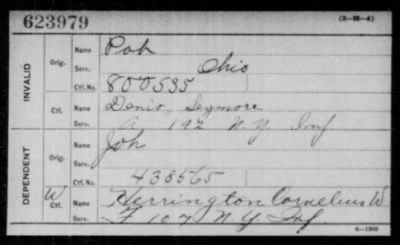 623979 (3-M-4)
INVALID Orig. Name Poh
Serv. Ohio
Ctf. No. 800535
Ctf. Name Denio, Seymore
Serv. A 192 N.Y. Inf
DEPENDENT Orig. Name Joh
Serv.
Ctf. No. 438565
W Ctf. Name Herrington Cornelius W
Serv. F 107 N Y Inf
6-1903